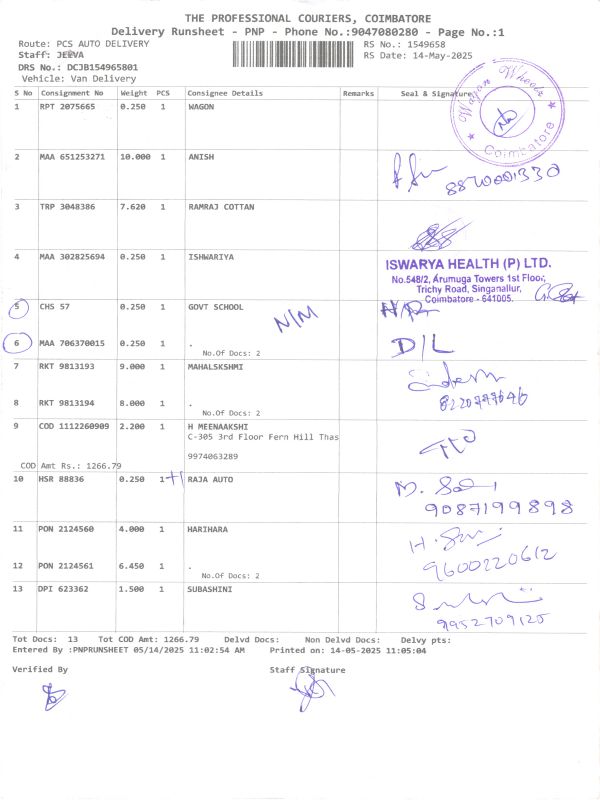 THE PROFESSIONAL COURIERS, COIMBATORE
Delivery Runsheet - PNP - Phone No.:9047080280 - Page No.:1
Route: PCS AUTO DELIVERY RS No.: 1549658
Staff: JEEVA RS Date: 14-May-2025
DRS No.: DCJB154965801
Vehicle: Van Delivery
S No Consignment No Weight PCS Consignee Details Remarks Seal & Signature
1 RPT 2075665 0.250 1 WAGON
Wagon Wheels
Coimbatore
2 MAA 651253271 10.000 1 ANISH
8870001330
3 TRP 3048386 7.620 1 RAMRAJ COTTAN
4 MAA 302825694 0.250 1 ISHWARIYA
ISWARYA HEALTH (P) LTD.
No.548/2, Arumuga Towers 1st Floor,
Trichy Road, Singanallur,
Coimbatore - 641005.
5 CHS 57 0.250 1 GOVT SCHOOL N/M
6 MAA 706370015 0.250 1 . D/L
No.Of Docs: 2
7 RKT 9813193 9.000 1 MAHALSKSHMI
8 RKT 9813194 8.000 1 .
No.Of Docs: 2
9 COD 1112260909 2.200 1 H MEENAAKSHI
C-305 3rd Floor Fern Hill Thas
9974063289
COD Amt Rs.: 1266.79
10 HSR 88836 0.250 1+1 RAJA AUTO
9087199898
11 PON 2124560 4.000 1 HARIHARA
12 PON 2124561 6.450 1 . 9600220612
No.Of Docs: 2
13 DPI 623362 1.500 1 SUBASHINI
9952709125
Tot Docs: 13 Tot COD Amt: 1266.79 Delvd Docs: Non Delvd Docs: Delvy pts:
Entered By :PNPRUNSHEET 05/14/2025 11:02:54 AM Printed on: 14-05-2025 11:05:04
Verified By Staff Signature